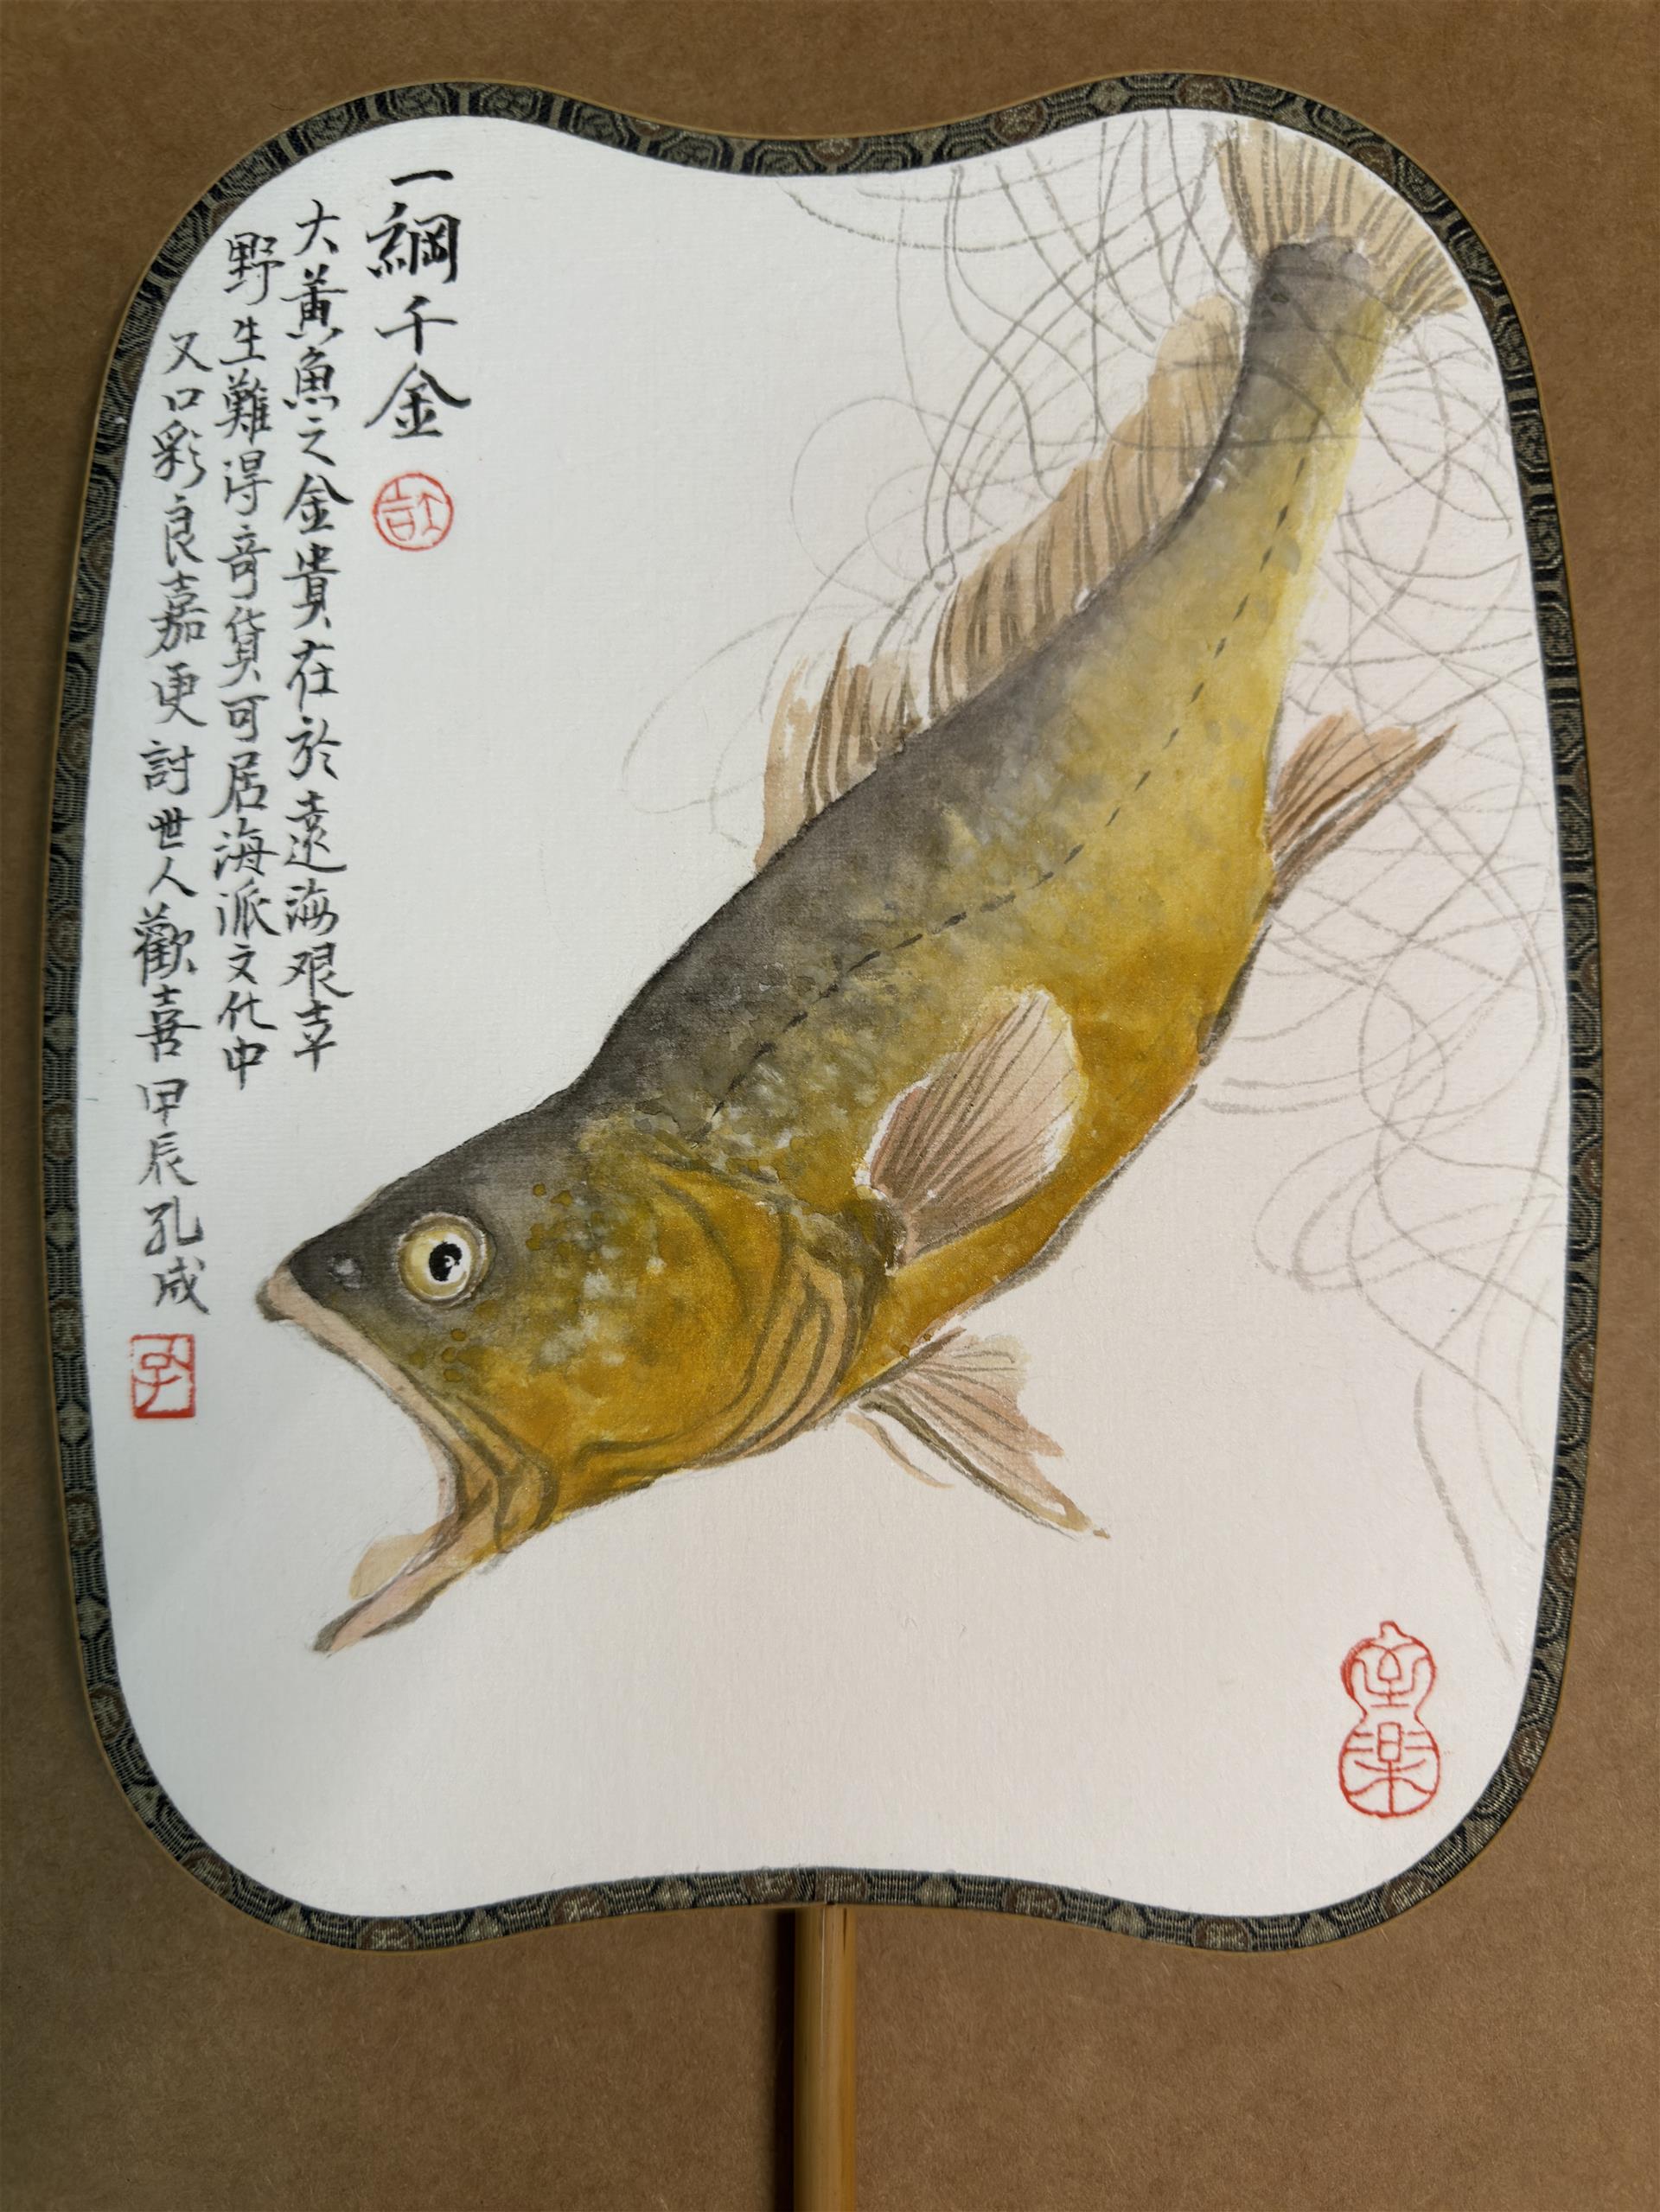 一綱千金
大黄魚之金貴在於遠海艰辛
野生難得奇貨可居海派文化中
又口彩良嘉更討世人歡喜甲辰孔成
孔